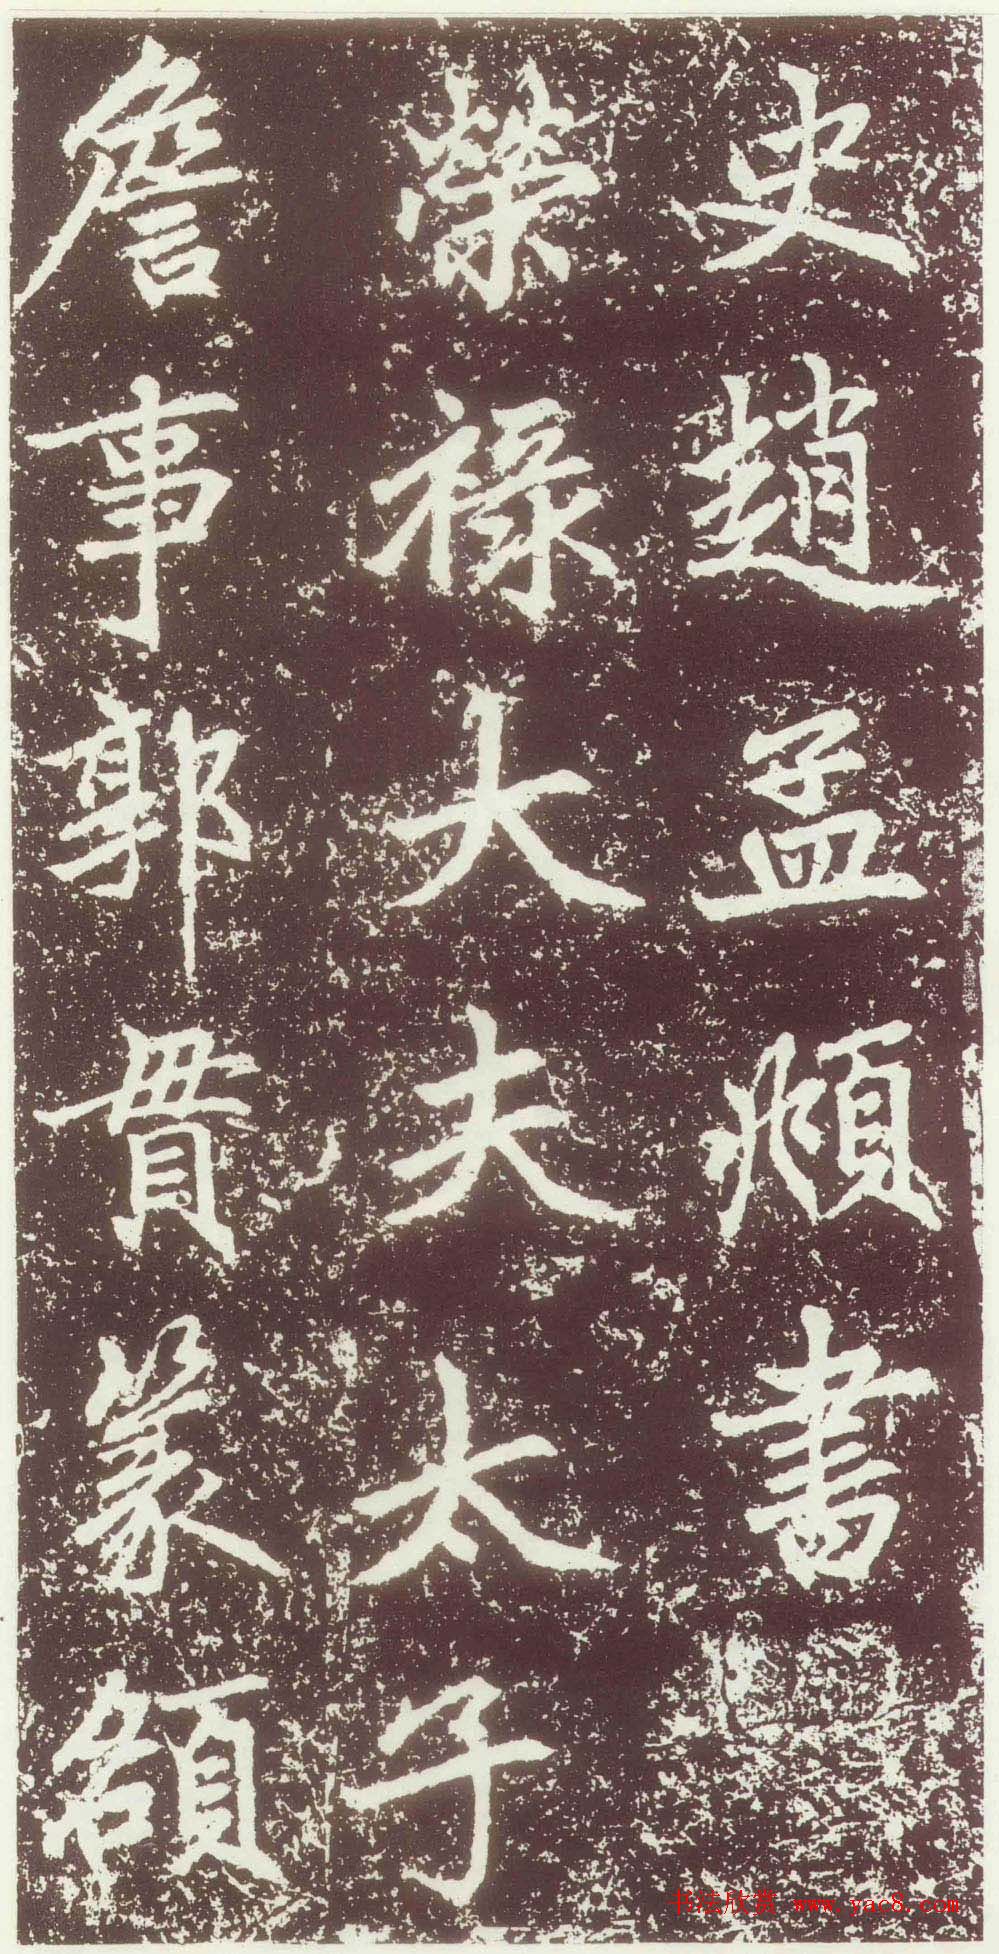 史趙孟頫書
榮祿大夫太子
詹事郭貫篆額
书法欣赏 www.yac8.com